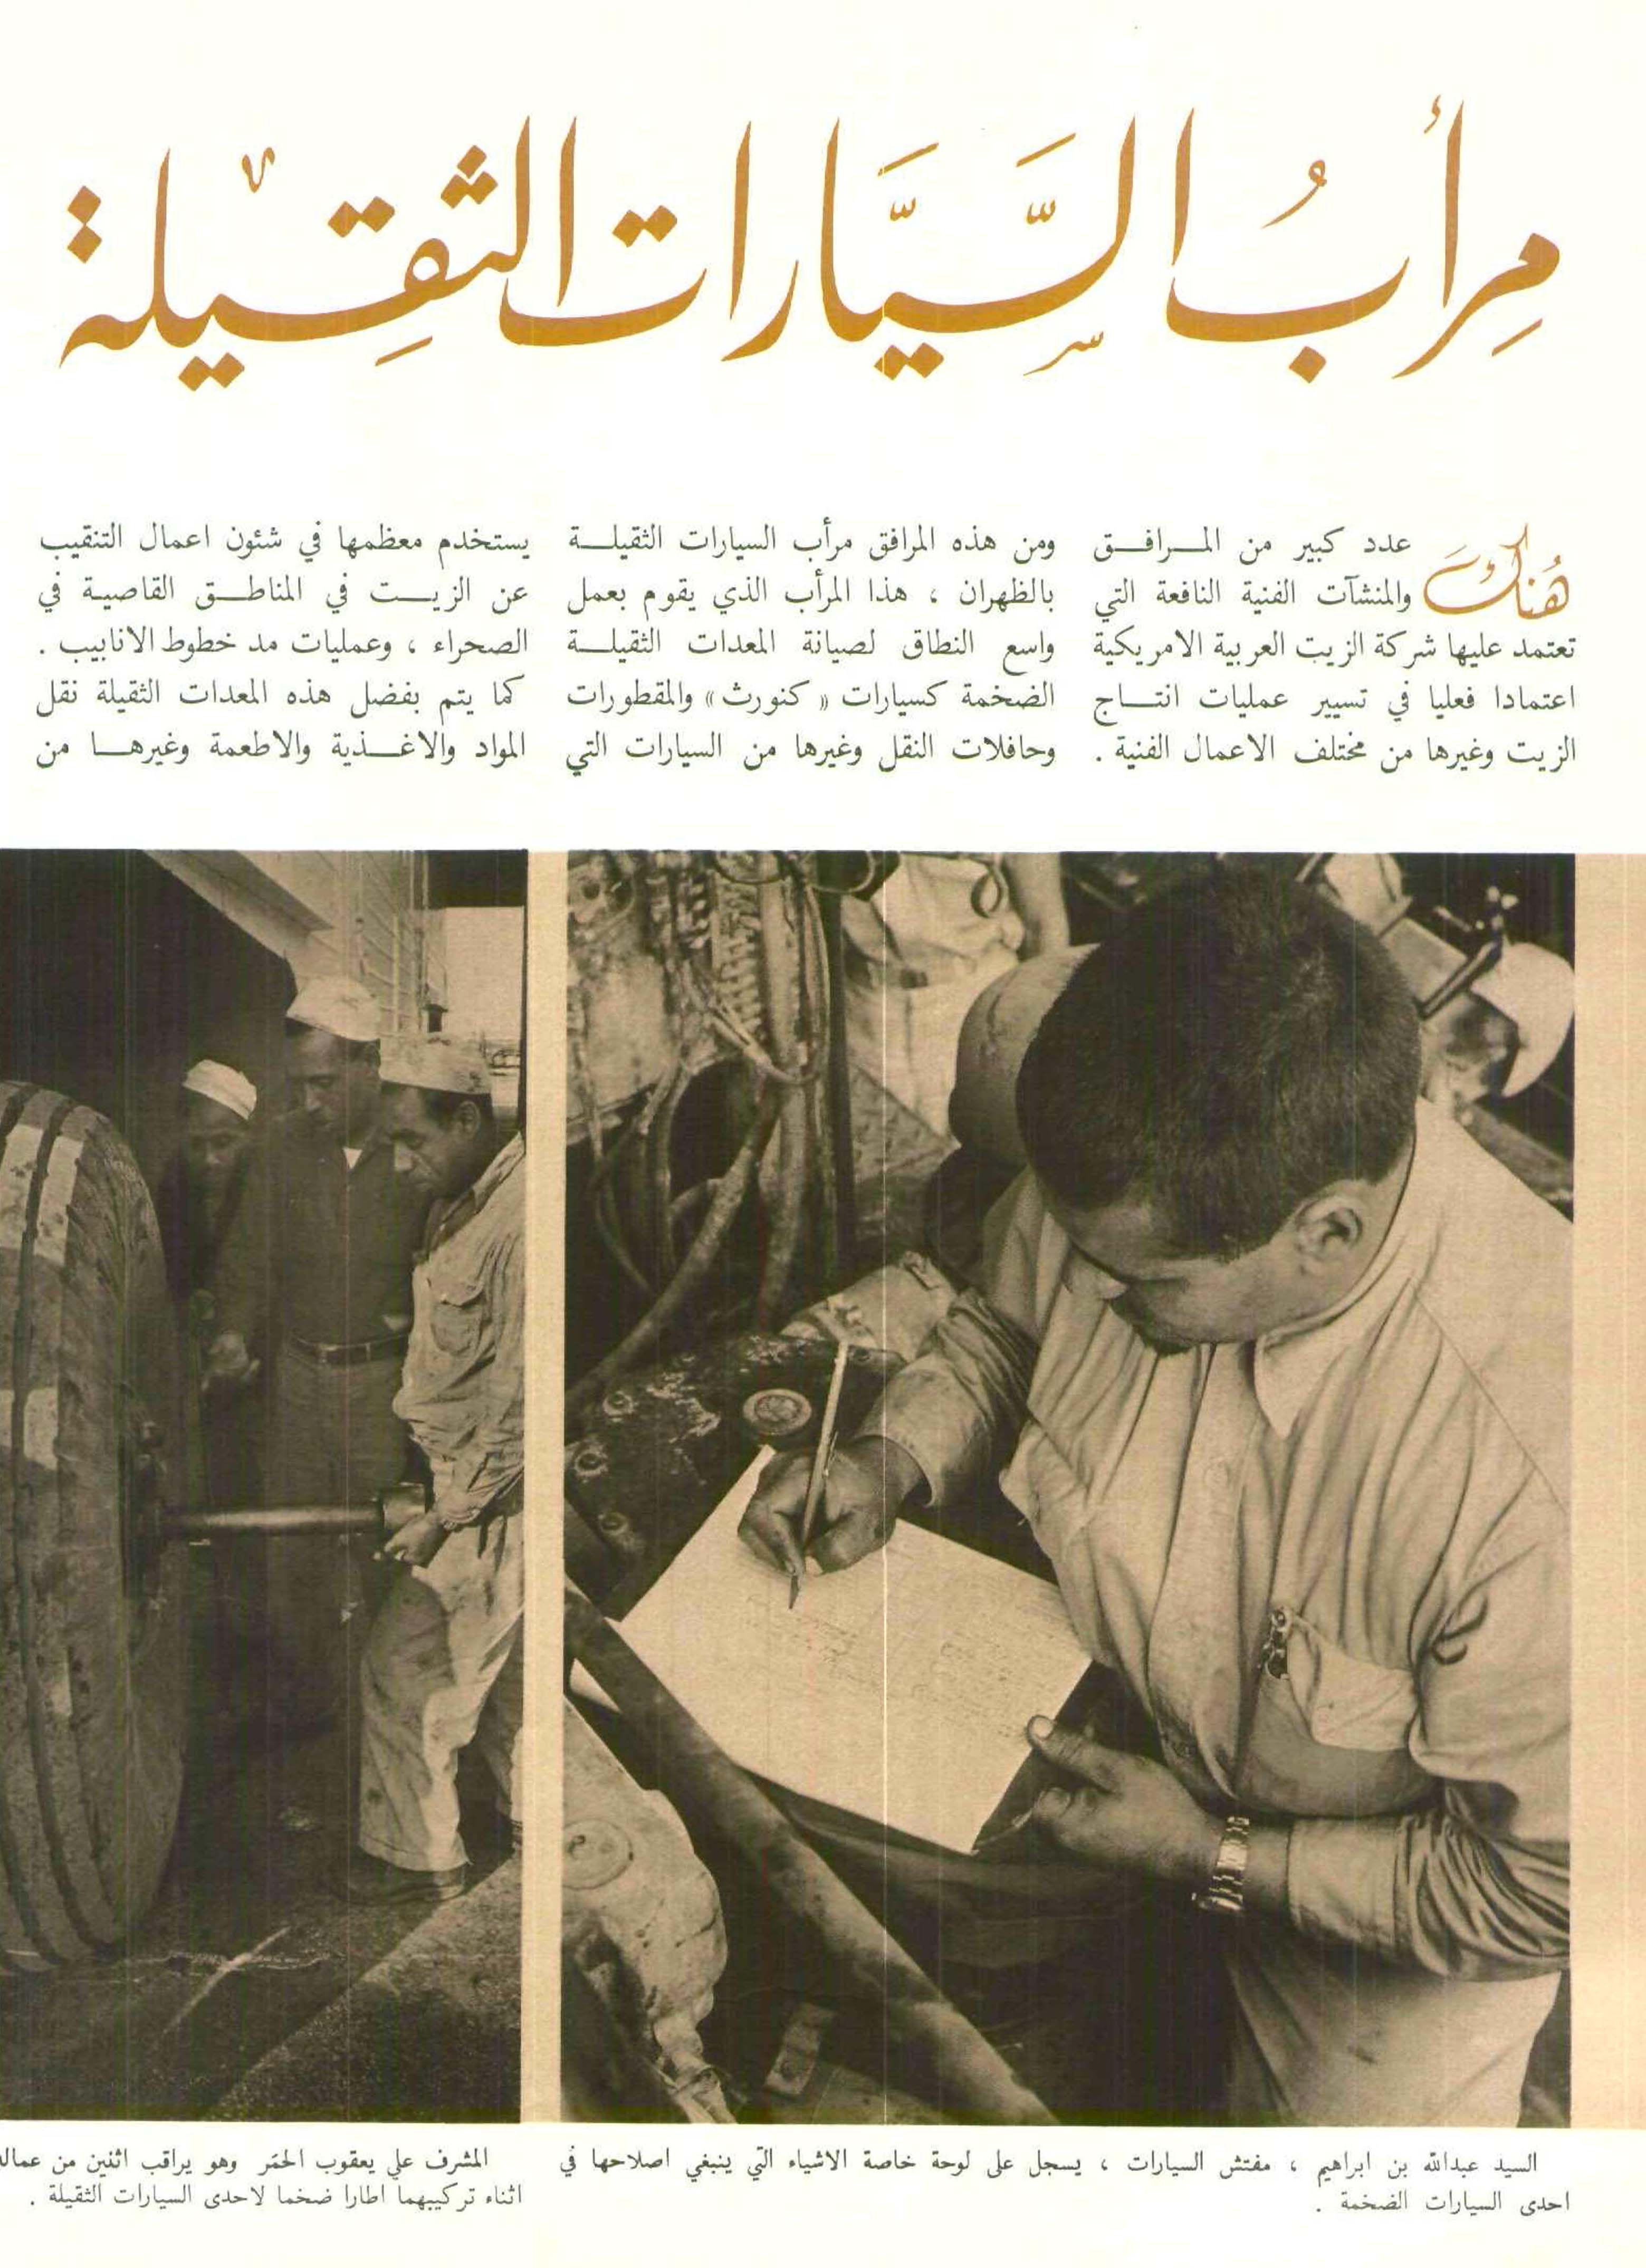 مرأبُ السَّيَّارات الثقِيلة
هُناكَ عدد كبير من المـرافـق
والمنشآت الفنية النافعة التي
تعتمد عليها شركة الزيت العربية الامريكية
اعتمادا فعليا في تسيير عمليات انتـاج
الزيت وغيرها من مختلف الاعمال الفنية .
ومن هذه المرافق مرأب السيارات الثقيلـة
بالظهران ، هذا المرأب الذي يقوم بعمل
واسع النطاق لصيانة المعدات الثقيلـة
الضخمة كسيارات « كنورث » والمقطورات
وحافلات النقل وغيرها من السيارات التي
يستخدم معظمها في شئون اعمال التنقيب
عن الزيـت في المناطـق القاصية في
الصحراء ، وعمليات مد خطوط الانابيب .
كما يتم بفضل هذه المعدات الثقيلة نقل
المواد والاغـذية والاطعمة وغيرهـا من
السيد عبدالله بن ابراهيم ، مفتش السيارات ، يسجل على لوحة خاصة الاشياء التي ينبغي اصلاحها في
احدى السيارات الضخمة .
المشرف علي يعقوب الحمَر وهو يراقب اثنين من عماله
اثناء تركيبهما اطارا ضخما لاحدى السيارات الثقيلة .